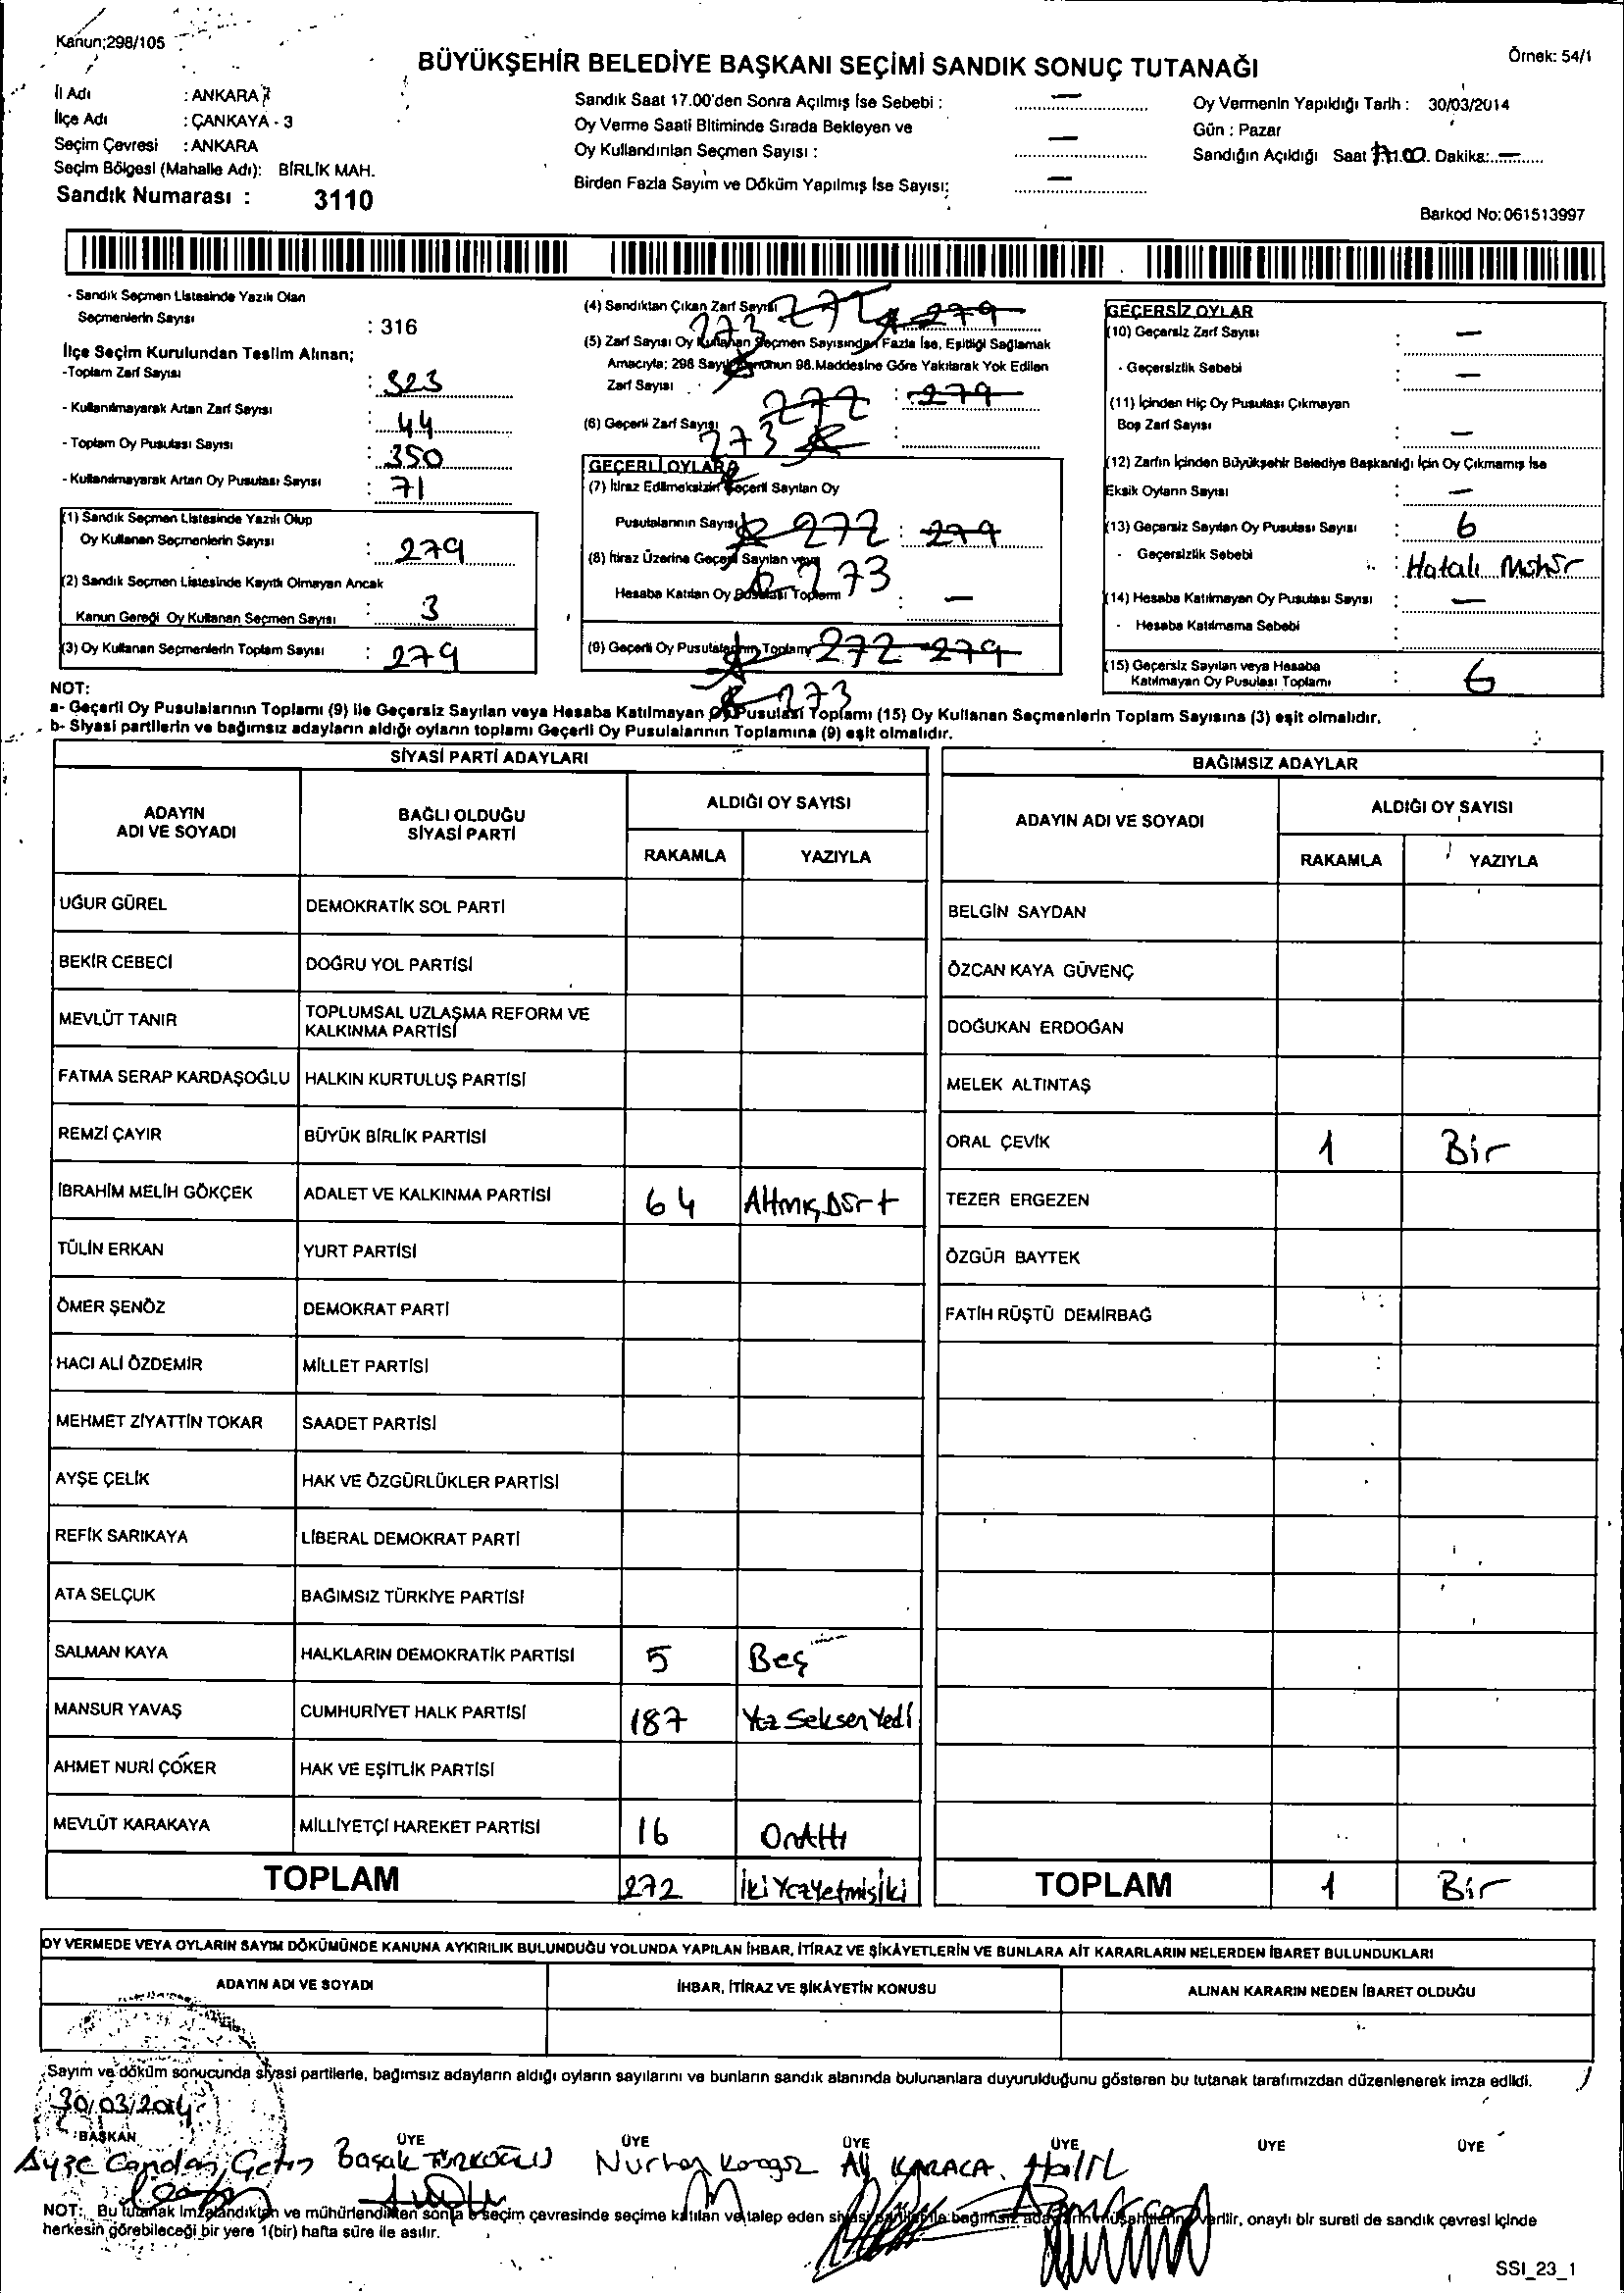 Kanun;298/105
BÜYÜKŞEHİR BELEDİYE BAŞKANI SEÇİMİ SANDIK SONUÇ TUTANAĞI
Örnek: 54/1
İl Adı : ANKARA
İlçe Adı : ÇANKAYA - 3
Seçim Çevresi : ANKARA
Seçim Bölgesi (Mahalle Adı): BİRLİK MAH.
Sandık Numarası : 3110
Sandık Saat 17.00'den Sonra Açılmış İse Sebebi : —
Oy Verme Saati Bitiminde Sırada Bekleyen ve
Oy Kullandırılan Seçmen Sayısı : —
Birden Fazla Sayım ve Döküm Yapılmış İse Sayısı: —
Oy Vermenin Yapıldığı Tarih : 30/03/2014
Gün : Pazar
Sandığın Açıldığı Saat 17.00 Dakika: —
Barkod No: 061513997
- Sandık Seçmen Listesinde Yazılı Olan
Seçmenlerin Sayısı : 316
İlçe Seçim Kurulundan Teslim Alınan;
-Toplam Zarf Sayısı : 323
- Kullanılmayarak Artan Zarf Sayısı : 44
- Toplam Oy Pusulası Sayısı : 350
- Kullanılmayarak Artan Oy Pusulası Sayısı : 71
(1) Sandık Seçmen Listesinde Yazılı Olup
Oy Kullanan Seçmenlerin Sayısı : 279
(2) Sandık Seçmen Listesinde Kayıtlı Olmayan Ancak
Kanun Gereği Oy Kullanan Seçmen Sayısı : 3
(3) Oy Kullanan Seçmenlerin Toplam Sayısı : 279
(4) Sandıktan Çıkan Zarf Sayısı 272 279
273
(5) Zarf Sayısı Oy Kullanan Seçmen Sayısından Fazla İse, Eşitliği Sağlamak
Amacıyla; 298 Sayılı Kanunun 98.Maddesine Göre Yakılarak Yok Edilen
Zarf Sayısı : 279
(6) Geçerli Zarf Sayısı 272
273
GEÇERLİ OYLAR
(7) İtiraz Edilmeksizin Geçerli Sayılan Oy
Pusulalarının Sayısı 272 : 279
(8) İtiraz Üzerine Geçerli Sayılan veya 273
Hesaba Katılan Oy Pusulası Toplamı : —
(9) Geçerli Oy Pusulalarının Toplamı 272 279
273
GEÇERSİZ OYLAR
(10) Geçersiz Zarf Sayısı : —
- Geçersizlik Sebebi : —
(11) İçinden Hiç Oy Pusulası Çıkmayan
Boş Zarf Sayısı : —
(12) Zarfın İçinden Büyükşehir Belediye Başkanlığı İçin Oy Çıkmamış İse
Eksik Oyların Sayısı : —
(13) Geçersiz Sayılan Oy Pusulası Sayısı : 6
- Geçersizlik Sebebi : Hatalı Mühür
(14) Hesaba Katılmayan Oy Pusulası Sayısı : —
- Hesaba Katılmama Sebebi :
(15) Geçersiz Sayılan veya Hesaba
Katılmayan Oy Pusulası Toplamı : 6
NOT:
a- Geçerli Oy Pusulalarının Toplamı (9) ile Geçersiz Sayılan veya Hesaba Katılmayan Oy Pusulası Toplamı (15) Oy Kullanan Seçmenlerin Toplam Sayısına (3) eşit olmalıdır.
b- Siyasi partilerin ve bağımsız adayların aldığı oyların toplamı Geçerli Oy Pusulalarının Toplamına (9) eşit olmalıdır.
SİYASİ PARTİ ADAYLARI
ADAYIN ADI VE SOYADI
BAĞLI OLDUĞU SİYASİ PARTİ
ALDIĞI OY SAYISI
RAKAMLA YAZIYLA
UĞUR GÜREL DEMOKRATİK SOL PARTİ
BEKİR CEBECİ DOĞRU YOL PARTİSİ
MEVLÜT TANIR TOPLUMSAL UZLAŞMA REFORM VE
KALKINMA PARTİSİ
FATMA SERAP KARDAŞOĞLU HALKIN KURTULUŞ PARTİSİ
REMZİ ÇAYIR BÜYÜK BİRLİK PARTİSİ
İBRAHİM MELİH GÖKÇEK ADALET VE KALKINMA PARTİSİ 64 Altmış Dört
TÜLİN ERKAN YURT PARTİSİ
ÖMER ŞENÖZ DEMOKRAT PARTİ
HACI ALİ ÖZDEMİR MİLLET PARTİSİ
MEHMET ZİYATTİN TOKAR SAADET PARTİSİ
AYŞE ÇELİK HAK VE ÖZGÜRLÜKLER PARTİSİ
REFİK SARIKAYA LİBERAL DEMOKRAT PARTİ
ATA SELÇUK BAĞIMSIZ TÜRKİYE PARTİSİ
SALMAN KAYA HALKLARIN DEMOKRATİK PARTİSİ 5 Beş
MANSUR YAVAŞ CUMHURİYET HALK PARTİSİ 187 Yüz Seksen Yedi
AHMET NURİ ÇÖKER HAK VE EŞİTLİK PARTİSİ
MEVLÜT KARAKAYA MİLLİYETÇİ HAREKET PARTİSİ 16 OnAltı
TOPLAM 272 İki Yüz Yetmiş İki
BAĞIMSIZ ADAYLAR
ADAYIN ADI VE SOYADI
ALDIĞI OY SAYISI
RAKAMLA YAZIYLA
BELGİN SAYDAN
ÖZCAN KAYA GÜVENÇ
DOĞUKAN ERDOĞAN
MELEK ALTINTAŞ
ORAL ÇEVİK 1 Bir
TEZER ERGEZEN
ÖZGÜR BAYTEK
FATİH RÜŞTÜ DEMİRBAĞ
TOPLAM 1 Bir
OY VERMEDE VEYA OYLARIN SAYIM DÖKÜMÜNDE KANUNA AYKIRILIK BULUNDUĞU YOLUNDA YAPILAN İHBAR, İTİRAZ VE ŞİKÂYETLERİN VE BUNLARA AİT KARARLARIN NELERDEN İBARET BULUNDUKLARI
ADAYIN ADI VE SOYADI İHBAR, İTİRAZ VE ŞİKÂYETİN KONUSU ALINAN KARARIN NEDEN İBARET OLDUĞU
Sayım ve döküm sonucunda siyasi partilerle, bağımsız adayların aldığı oyların sayılarını ve bunların sandık alanında bulunanlara duyurulduğunu gösteren bu tutanak tarafımızdan düzenlenerek imza edildi.
30/03/2014
BAŞKAN ÜYE ÜYE ÜYE ÜYE ÜYE ÜYE
Ayşe Candan Çetin Başak TÜRKOĞLU Nurhan Ali KARACA Halil
NOT: Bu tutanak imzalandıktan ve mühürlendikten sonra o seçim çevresinde seçime katılan ve talep eden siyasi partiler ile bağımsız adayların müşahitlerine verilir, onaylı bir sureti de sandık çevresi içinde
herkesin görebileceği bir yere 1(bir) hafta süre ile asılır.
SSI_23_1